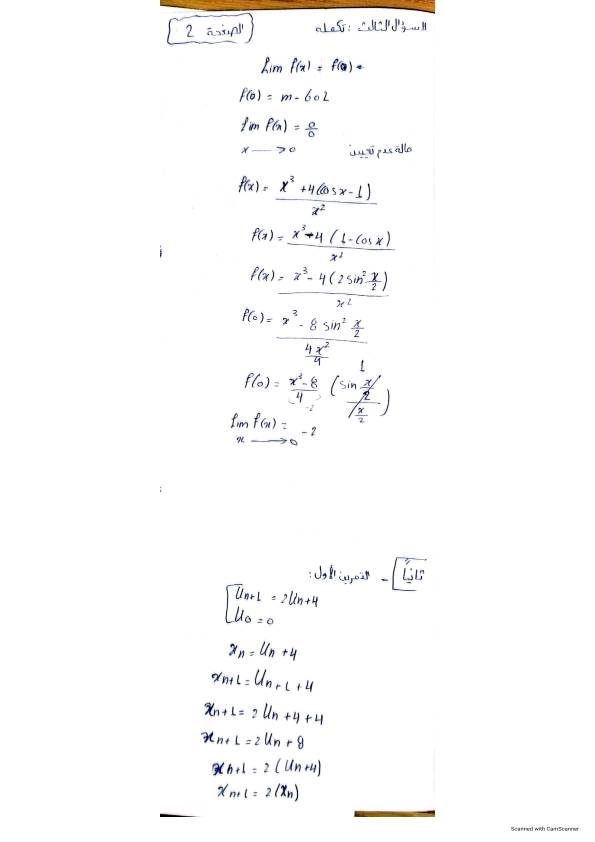 السؤال الثالث : تكملة
الصفحة 2
Lim f(x) = f(0)
f(0) = m - 602
Lim f(x) = 0/0
x → 0 حالة عدم تعيين
f(x) = x³ + 4(cos x - 1) / x²
f(x) = x³ - 4(1 - cos x) / x²
f(x) = x³ - 4(2 sin² x/2) / x²
f(0) = x³ - 8 sin² x/2 / 4x²/4
f(0) = x³ - 8 / 4 (sin x/2 / x/2) 1
-2
Lim f(x) = -2
x → 0
ثانياً - التمرين الأول :
Un+1 = 2Un + 4
U0 = 0
xn = Un + 4
xn+1 = Un+1 + 4
xn+1 = 2Un + 4 + 4
xn+1 = 2Un + 8
xn+1 = 2(Un + 4)
xn+1 = 2(xn)
Scanned with CamScanner